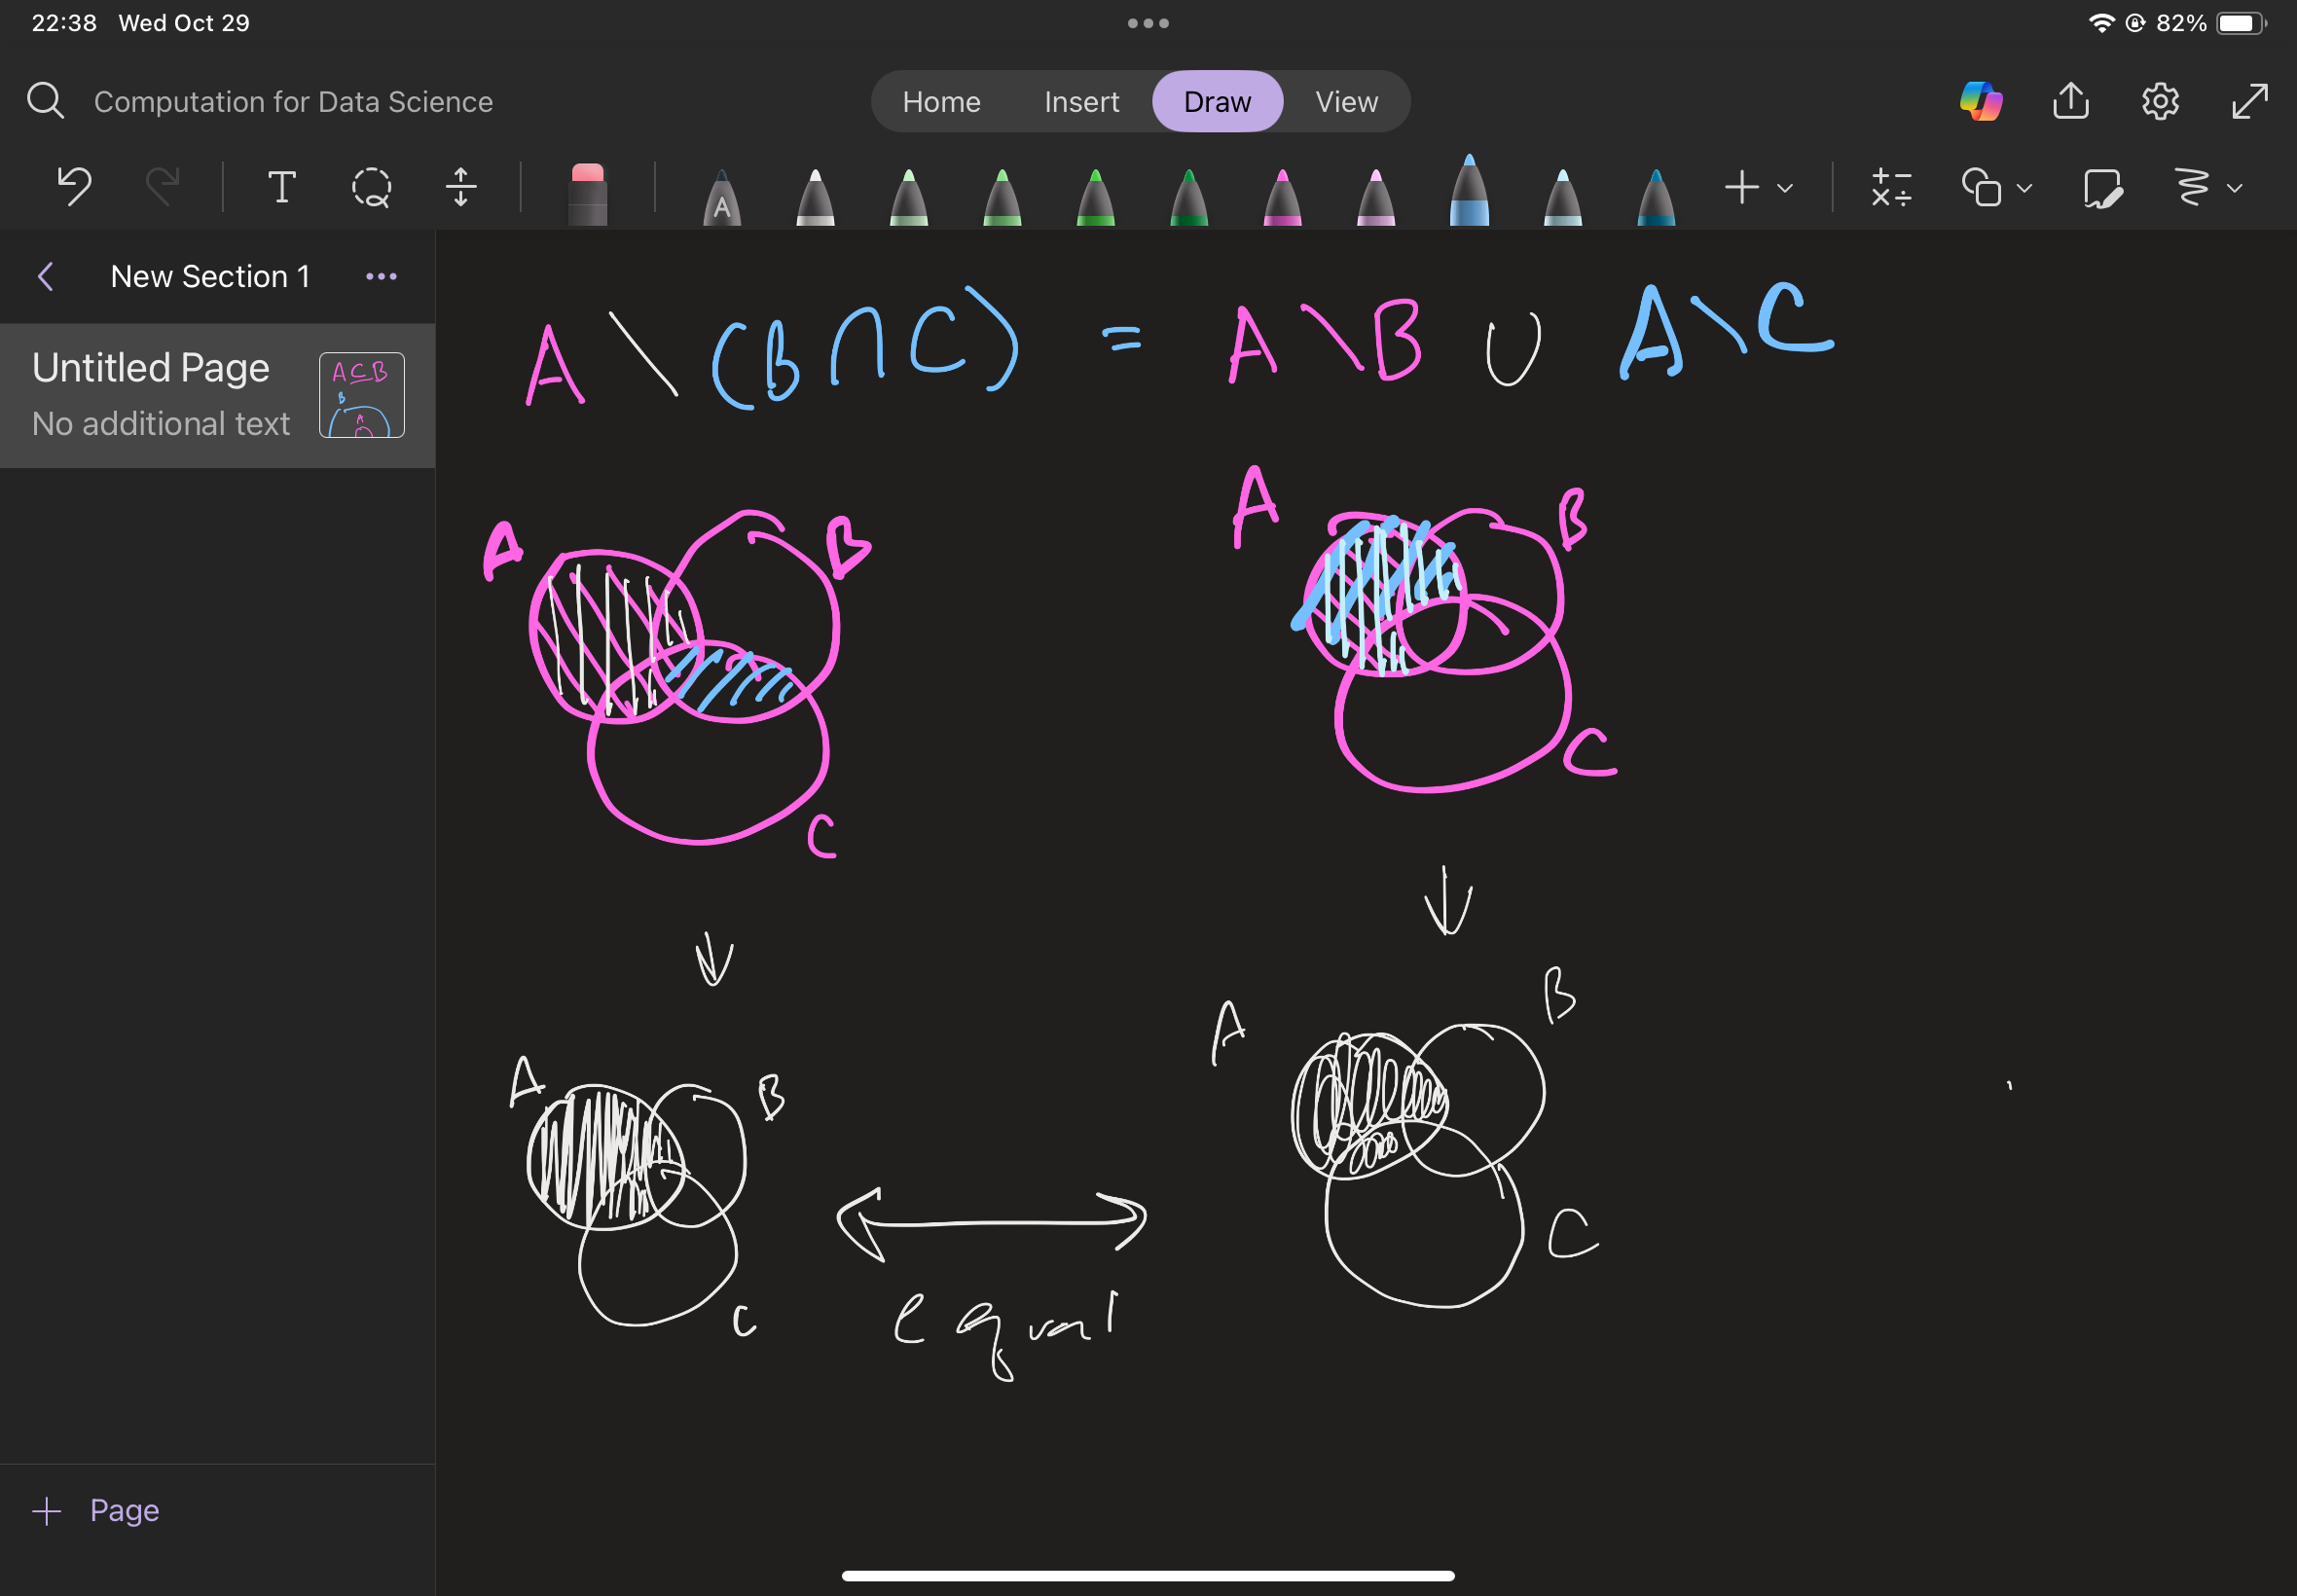 22:38 Wed Oct 29 82%
Computation for Data Science Home Insert Draw View
T A
New Section 1
Untitled Page
No additional text
A ⊂ B
B
A
A \ (B ∩ C) = A \ B ∪ A \ C
A B A B
C C
A B A B
C C
equal
+ Page